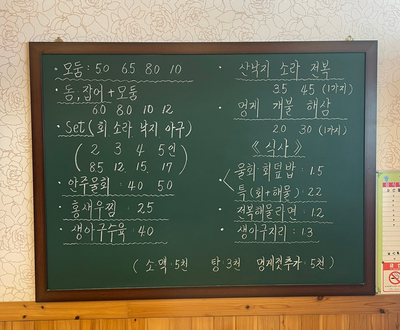 · 모둠 : 5.0 6.5 8.0 10
· 돔, 잡어 + 모둠
6.0 8.0 10 12
· Set ( 회 소라 낙지 아구 )
( 2 3 4 5인
8.5 12. 15. 17 )
· 안주물회 : 4.0 5.0
· 홍새우찜 : 2.5
· 생아구수육 : 4.0
· 산낙지 소라 전복
3.5 4.5 (1가지)
· 멍게 개불 해삼
2.0 3.0 (1가지)
《 식사 》
· 물회 회덮밥 : 1.5
특 (회+해물) : 2.2
· 전복해물라면 : 1.2
· 생아구지리 : 1.3
( 소맥 : 5천 탕 3천 멍게젓추가 : 5천 )